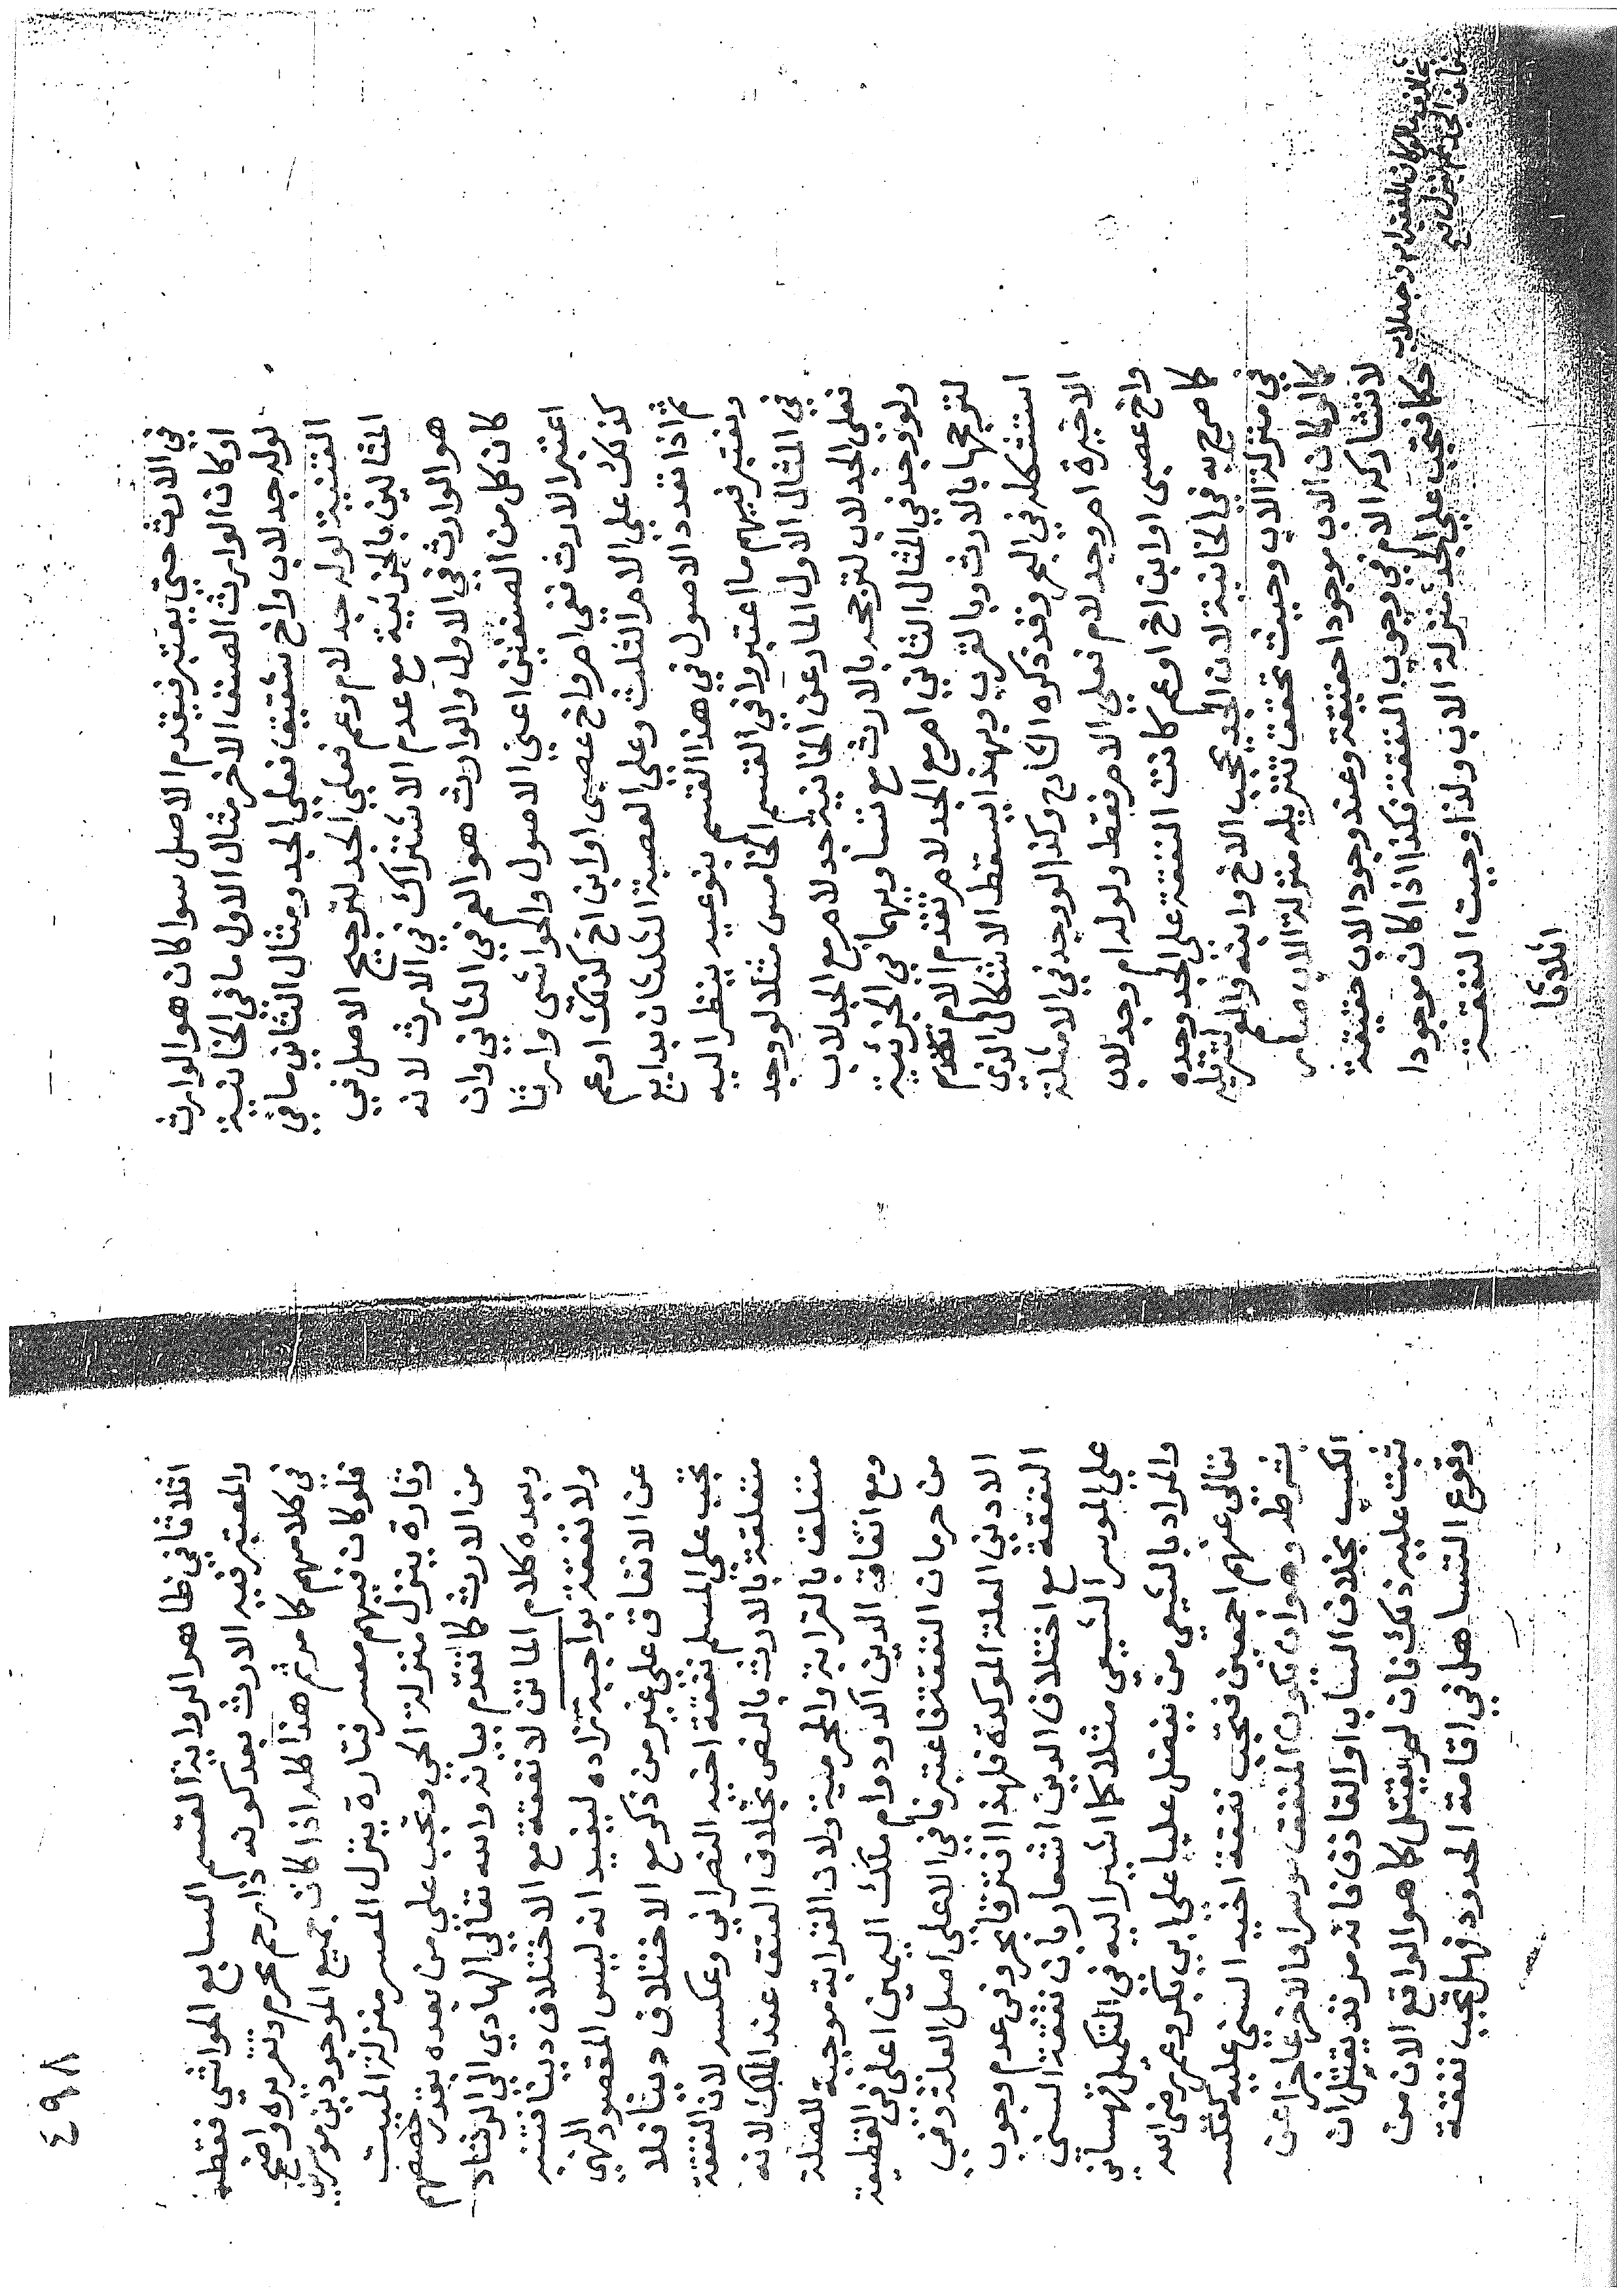 في الارث حتي يعتبر فيقدم الاصل سوا كان هو الوارث
او كان الوارث الصنف الاخر مثال الاول ما في الخانية
لو له جد لاب واخ شقيق فعلي الجد ومثال الثاني ما في
القنية لو له جد لام وعم فعلي الجد لترجيح الاصل في
المثالين بالجزئية مع عدم الاشتراك في الارث لانه
هو الوارث في الاول والوارث هو العم في الثاني وان
كان كل من الصنفين اعني الاصول والحواشي وارثا
اعتبر الارث ففي ام واخ عصبي او ابن اخ كذلك او عم
كذلك علي الام الثلث وعلي العصبة الثلثان بدايع
ثم اذا تعدد الاصول في هذا القسم بنوعيه ينظر اليه
ويعتبر فيهم ما اعتبروا في القسم الخامس مثلا لو وجد
في المثال الاول المار عن الخانية جد لام مع الجد لاب
نعلي الجد لاب لترجحه بالارث مع تساويهما في الجزئية
ولو وجد في المثال الثاني ام مع الجد لام تقدم الام
لترجحها بالارث وبالقرب وبهذا يسقط الاشكال الذي
استشكله في البحر وقد ذكره الشارح وكذا لو وجد في الامثلة
الاخيرة ام وجد لام فعلي الام فقط ولو له ام وجد لاب
واخ عصبي او ابن اخ او عم كانت النفقة علي الجد وحده
كما صرح به في الخانية لان الجد يحجب الاخ وابنه والعم لتنزيله
في منزلة الاب وحيث تحقق تنزيله منزلة الاب صار
كما لو كان الاب موجودا حقيقة وعند وجود الاب حقيقة
لا تشاركه الام في وجوب النفقة فكذا اذا كان موجودا
حكما فتجب علي الجد منزلة الاب ولذا وجبت النفقة
اثلاثا
بخلاف ما لو كان للفقير ام وجد لاب
فان الجد لم ينزل فيه
٤٩٨
اثلاثا في ظاهر الرواية القسم السابع الحواشي فقط
والمعتبر فيه الارث بعد كونه ذا رحم محرم وتقريره واضح
في كلامهم كما مر ثم هذا كله اذا كان جميع الموجودين موسرين
فلو كان فيهم معسر فتارة ينزل المعسر منزلة الميت
وتارة ينزل منزلة الحي وتجب علي من بعده بقدر حصصهم
من الارث كما تقدم بيانه والله تعالي الهادي الي الرشاد
وبعده كلام الماتن لا نفقة مع الاختلاف دينا فتنبه
ولا نفقة بواجبة زاده ليفيد انه ليس المقصود النهي
عن الانفاق علي غير من ذكر مع الاختلاف دينا فلا
يجب علي المسلم نفقة اخيه النصراني وعكسه لان النفقة
متعلقة بالارث بالنص بخلاف العتق عند الملك لانه
متعلق بالقرابة والمحرمية ولان القرابة موجبة للصلة
ومع اتفاق الدين اكد ودوام ملك اليمين اعلي في القطيعة
من حرمان النفقة فاعتبرنا في الاعلي اصل العلة وفي
الادني العلة الموكدة فلهذا افترقا بحر وفي عدم وجوب
النفقة مع اختلاف الدين اشعار بان نفقة السني
علي الموسر الشيعي مثلا كما اشير اليه في التكميل قهستاني
والمراد بالشيعي من يفضل عليا علي ابي بكر وعمر رضي الله
تعالي عنهم اجمعين فتجب نفقة اخيه السني عليه كعكسه
بشرطه وهو ان يكون المنفق موسرا والاخر عاجزا عن
الكسب بخلاف الساب او القاذف فانه مرتد يقتل ان
ثبت عليه ذلك فان لم يقتل كما هو الواقع الان من
وقوع التساهل في اقامة الحدود فهل تجب نفقة